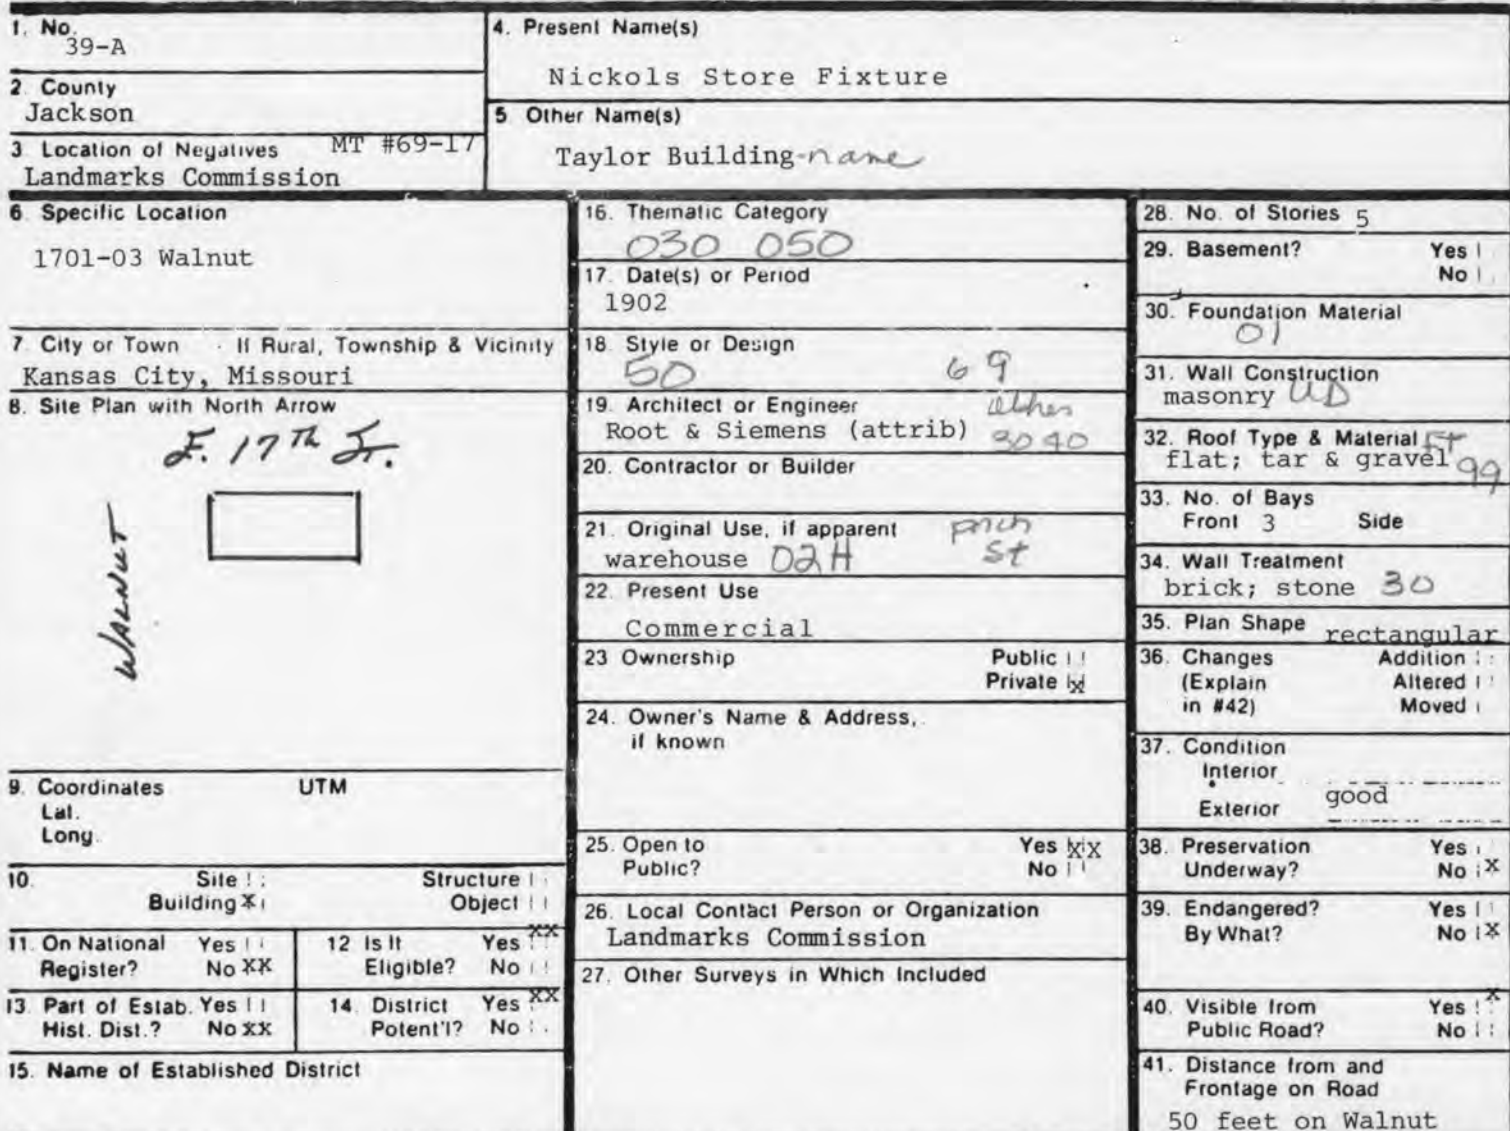 1. No.
39-A
2. County
Jackson
3. Location of Negatives MT #69-17
Landmarks Commission
4. Present Name(s)
Nickols Store Fixture
5. Other Name(s)
Taylor Building-name
6. Specific Location
1701-03 Walnut
7. City or Town If Rural, Township & Vicinity
Kansas City, Missouri
8. Site Plan with North Arrow
E. 17th St.
WALNUT
9. Coordinates UTM
Lat.
Long.
10. Site Structure
Building X Object
11. On National Yes
Register? No XX
12 Is It Yes XX
Eligible? No
13. Part of Estab. Yes
Hist. Dist.? No XX
14. District Yes XX
Potent'l? No
15. Name of Established District
16. Thematic Category
030 050
17. Date(s) or Period
1902
18. Style or Design
50 69
19. Architect or Engineer other
Root & Siemens (attrib) 3040
20. Contractor or Builder
21. Original Use, if apparent porch
warehouse 02H St
22. Present Use
Commercial
23 Ownership Public
Private X
24. Owner's Name & Address,
if known
25. Open to Yes XX
Public? No
26. Local Contact Person or Organization
Landmarks Commission
27. Other Surveys in Which Included
28. No. of Stories 5
29. Basement? Yes
No
30. Foundation Material
01
31. Wall Construction
masonry UD
32. Roof Type & Material FT
flat; tar & gravel 99
33. No. of Bays
Front 3 Side
34. Wall Treatment
brick; stone 30
35. Plan Shape rectangular
36. Changes Addition
(Explain Altered
in #42) Moved
37. Condition
Interior
Exterior good
38. Preservation Yes
Underway? No X
39. Endangered? Yes
By What? No X
40. Visible from Yes X
Public Road? No
41. Distance from and
Frontage on Road
50 feet on Walnut